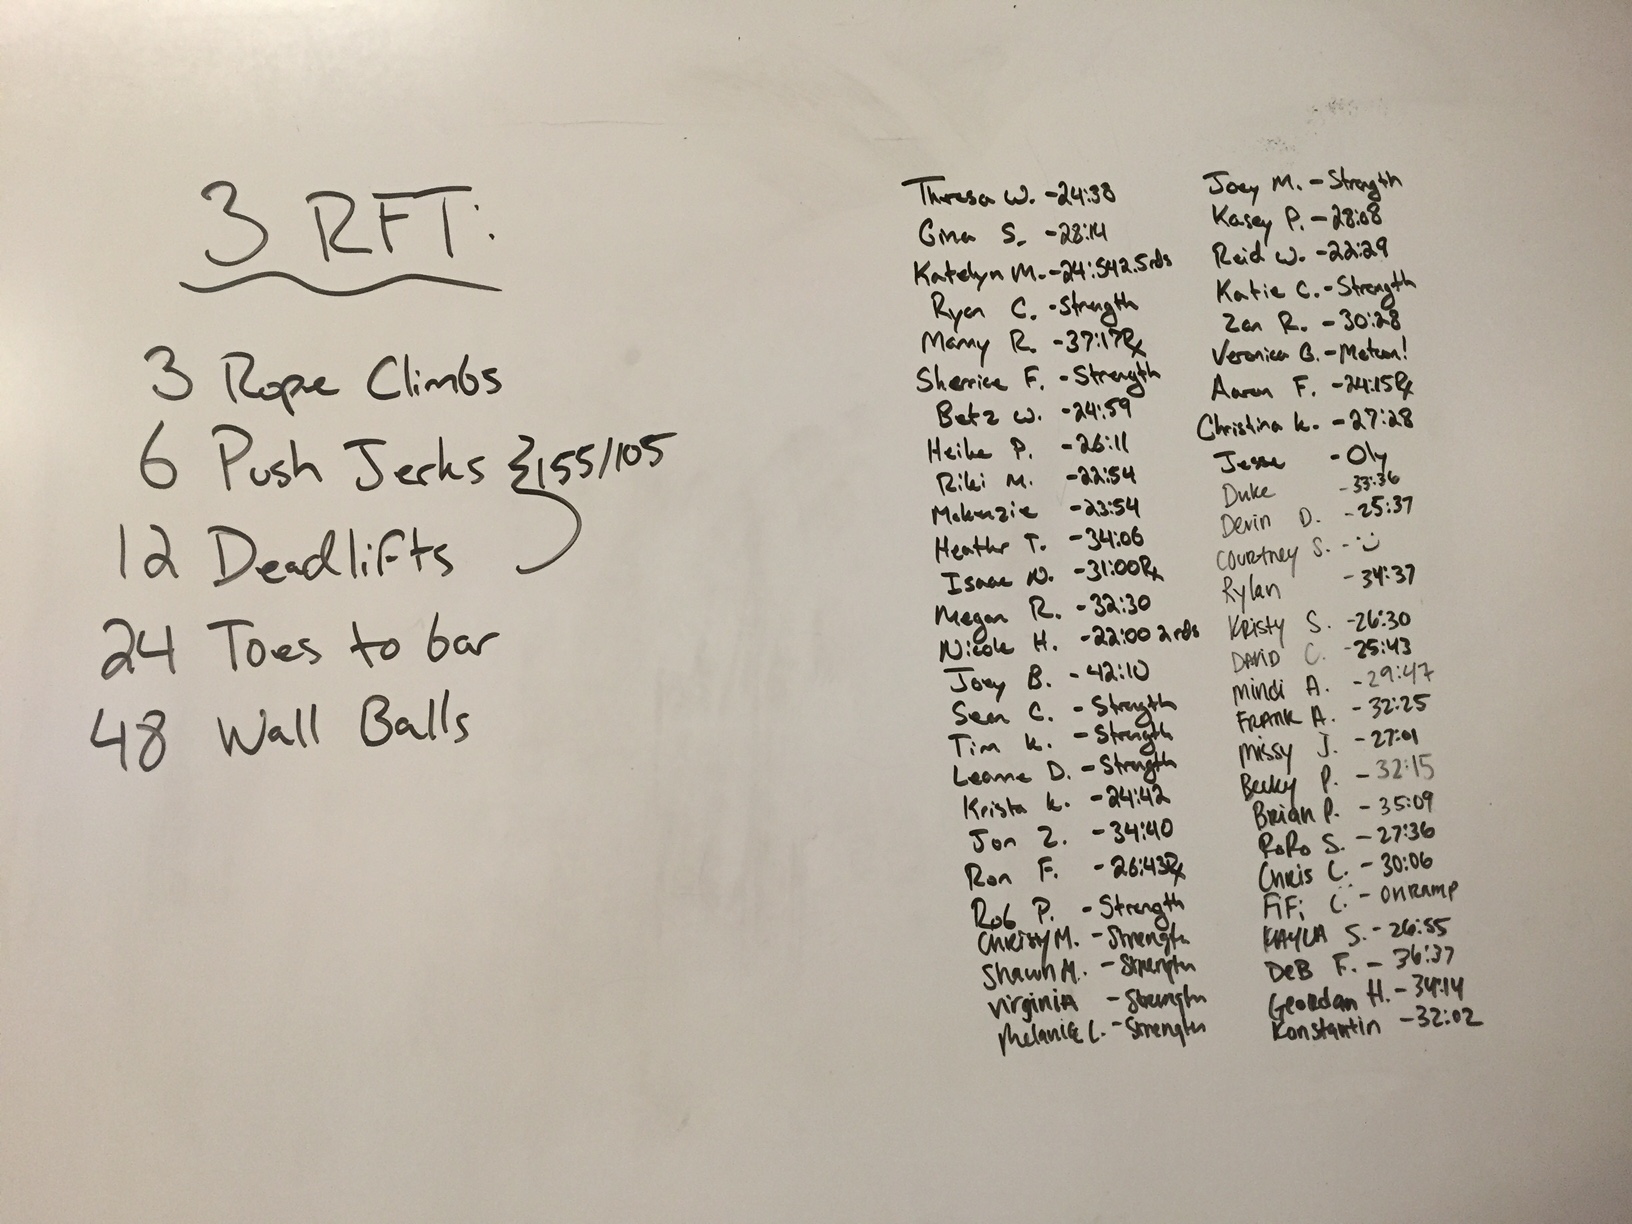 3 RFT:
3 Rope Climbs
6 Push Jerks }155/105
12 Deadlifts
24 Toes to bar
48 Wall Balls
Theresa W. -24:38
Gina S. -28:14
Katelyn M. -24:54 2.5rds
Ryan C. -Strength
Manny R. -37:17Rx
Sherrie F. -Strength
Betz W. -24:59
Heike P. -26:11
Riki M. -22:54
Mckenzie -23:54
Heathr T. -34:06
Isaac N. -31:00Rx
Megan R. -32:30
Nicole H. -22:00 2rds
Joey B. -42:10
Sean C. -Strength
Tim K. -Strength
Leanne D. -Strength
Krista K. -24:42
Jon Z. -34:40
Ron F. -26:43Rx
Rob P. -Strength
Christy M. -Strength
Shawn M. -Strength
Virginia -Strength
Melanie L. -Strength
Joey M. -Strength
Kasey P. -28:08
Reid W. -22:29
Katie C. -Strength
Zan R. -30:28
Veronica G. -Metcon!
Aaron F. -24:15Rx
Christina K. -27:28
Jesse -Oly
Duke -33:36
Devin D. -25:37
Courtney S. - :)
Rylan -34:37
Kristy S. -26:30
David C. -25:43
Mindi A. -29:47
Frank A. -32:25
Missy J. -27:01
Becky P. -32:15
Brian P. -35:09
RoRo S. -27:36
Chris C. -30:06
FiFi C. -OnRamp
Kayla S. -26:55
Deb F. -36:37
Geordan H. -34:14
Konstantin -32:02